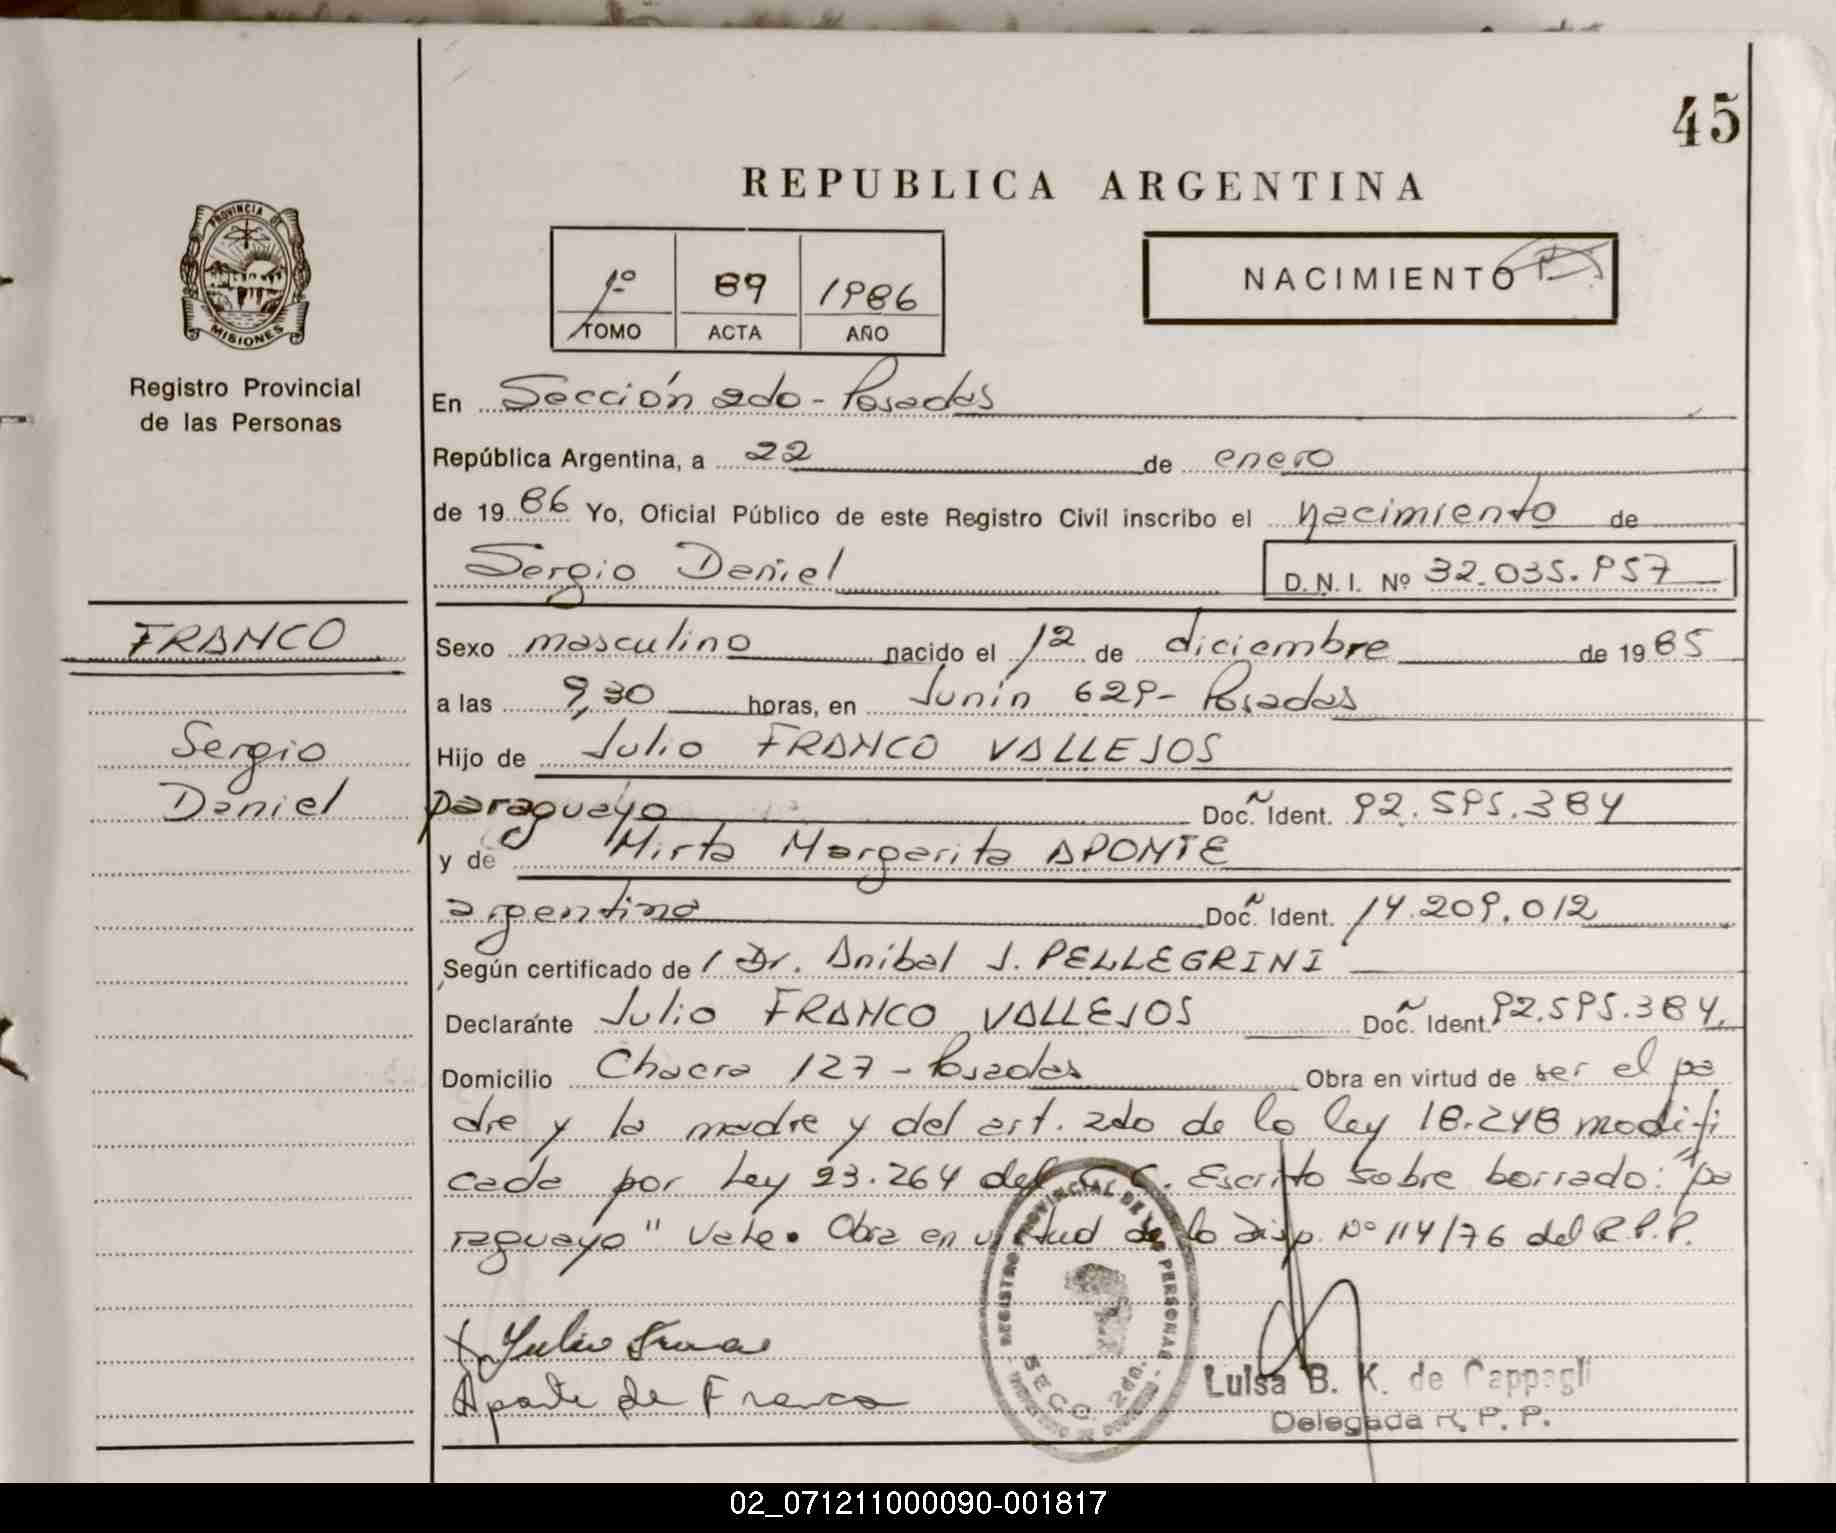 45
REPUBLICA ARGENTINA
PROVINCIA DE
MISIONES
Registro Provincial
de las Personas
1º 89 1986
TOMO ACTA AÑO
NACIMIENTO
En Sección 2do - Posadas
República Argentina, a 22 de enero
de 1986 Yo, Oficial Público de este Registro Civil inscribo el nacimiento de
Sergio Daniel D.N.I. Nº 32.035.957
FRANCO
Sergio
Daniel
Sexo masculino nacido el 12 de diciembre de 1985
a las 9,30 horas, en Junín 629 - Posadas
Hijo de Julio FRANCO VALLEJOS
paraguayo Doc. Ident. 92.595.384
y de Mirta Margarita APONTE
argentina Doc. Ident. 14.209.012
Según certificado de / Dr. Anibal J. PELLEGRINI
Declarante Julio FRANCO VALLEJOS Doc. Ident. 92.595.384,
Domicilio Chacra 127 - Posadas Obra en virtud de ser el pa
dre y la madre y del art. 2do de la ley 18.248 modifi
cada por Ley 23.264 del C.C. Escrito sobre borrado: "pa
raguayo" Vale. Obra en virtud de la Disp. Nº 114/76 del R.P.P.
Julio Franco
Aponte de Franco
REGISTRO PROVINCIAL DE LAS PERSONAS
SECC. 2da.
Luisa B. K. de Cappagli
Delegada R. P. P.
02_071211000090-001817